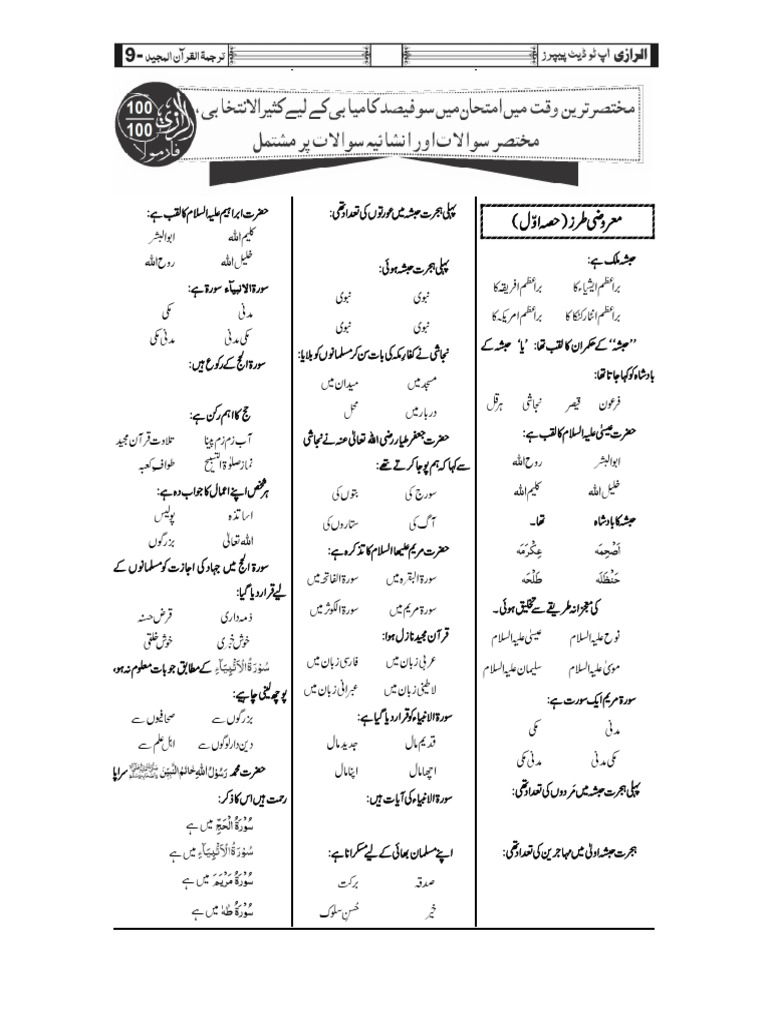 الرازی اپ ٹو ڈیٹ پیپرز
ترجمۃ القرآن المجید -9
100
100
الرازی
فارمولا
مختصر ترین وقت میں امتحان میں سو فیصد کامیابی کے لیے کثیر الانتخابی،
مختصر سوالات اور انشائیہ سوالات پر مشتمل
معروضی طرز (حصہ اوّل)
حبشہ ملک ہے:
براعظم ایشیاء کا براعظم افریقہ کا
براعظم انٹارکٹکا کا براعظم امریکہ کا
’’حبشہ‘‘ کے حکمران کا لقب تھا: ’یا‘ حبشہ کے
بادشاہ کو کہا جاتا تھا:
فرعون قیصر نجاشی ہرقل
حضرت عیسیٰ علیہ السلام کا لقب ہے:
ابوالبشر روح اللہ
خلیل اللہ کلیم اللہ
حبشہ کا بادشاہ تھا۔
اَصْحِمَہ عِکْرَمَہ
حَنْظَلَہ طَلْحَہ
کی معجزانہ طریقے سے تخلیق ہوئی۔
نوح علیہ السلام عیسیٰ علیہ السلام
موسیٰ علیہ السلام سلیمان علیہ السلام
سورۃ مریم ایک سورت ہے:
مدنی مکی
مکی مدنی مدنی مکی
پہلی ہجرت حبشہ میں مَردوں کی تعداد تھی:
ہجرت حبشہ اولیٰ میں مہاجرین کی تعداد تھی:
پہلی ہجرت حبشہ میں عورتوں کی تعداد تھی:
پہلی ہجرت حبشہ ہوئی:
نبوی نبوی
نبوی نبوی
نجاشی نے کفارِ مکہ کی بات سن کر مسلمانوں کو بلایا:
مسجد میں میدان میں
دربار میں محل
حضرت جعفر طیار رضی اللہ تعالیٰ عنہ نے نجاشی
سے کہا کہ ہم پوجا کرتے تھے:
سورج کی بتوں کی
آگ کی ستاروں کی
حضرت مریم علیہا السلام کا تذکرہ ہے:
سورۃ البقرہ میں سورۃ الفاتحہ میں
سورۃ مریم میں سورۃ الکوثر میں
قرآن مجید نازل ہوا:
عربی زبان میں فارسی زبان میں
لاطینی زبان میں عبرانی زبان میں
سورۃ الانبیاء کو قرار دیا گیا ہے:
قدیم مال جدید مال
اچھا مال اپنا مال
سورۃ الانبیاء کی آیات ہیں:
اپنے مسلمان بھائی کے لیے مسکرانا ہے:
صدقہ برکت
خیر حُسنِ سلوک
حضرت ابراہیم علیہ السلام کا لقب ہے:
کلیم اللہ ابوالبشر
خلیل اللہ روح اللہ
سورۃ الانبیآء سورۃ ہے:
مدنی مکی
مکی مدنی مدنی مکی
سورۃ الحج کے رکوع ہیں:
حج کا اہم رکن ہے:
آب زم زم پینا تلاوت قرآن مجید
نماز صلوٰۃ التسبیح طوافِ کعبہ
ہر شخص اپنے اعمال کا جواب دہ ہے:
اساتذہ پولیس
اللہ تعالیٰ بزرگوں
سورۃ الحج میں جہاد کی اجازت کو مسلمانوں کے
لیے قرار دیا گیا:
ذمہ داری قرض حسنہ
خوش خبری خوش خلقی
سُوْرَۃُ الْاَنْۢبِیَآءِ کے مطابق جو بات معلوم نہ ہو،
پوچھ لینی چاہیے:
بزرگوں سے صحافیوں سے
دین دار لوگوں سے اہلِ علم سے
حضرت محمد رَسُوْلُ اللہِ خَاتَمُ النَّبِیّٖنَ ﷺ سراپا
رحمت ہیں اس کا ذکر:
سُوْرَۃُ الْحَجِّ میں ہے
سُوْرَۃُ الْاَنْۢبِیَآءِ میں ہے
سُوْرَۃُ مَرْیَمَ میں ہے
سُوْرَۃُ طٰہٰ میں ہے